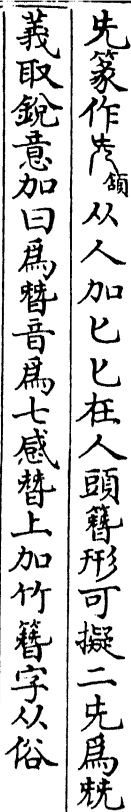 兂篆作𠑹額从人加匕匕在人頭簪形可擬二兂爲兟
義取銳意加曰爲朁音爲七感朁上加竹簪字从俗